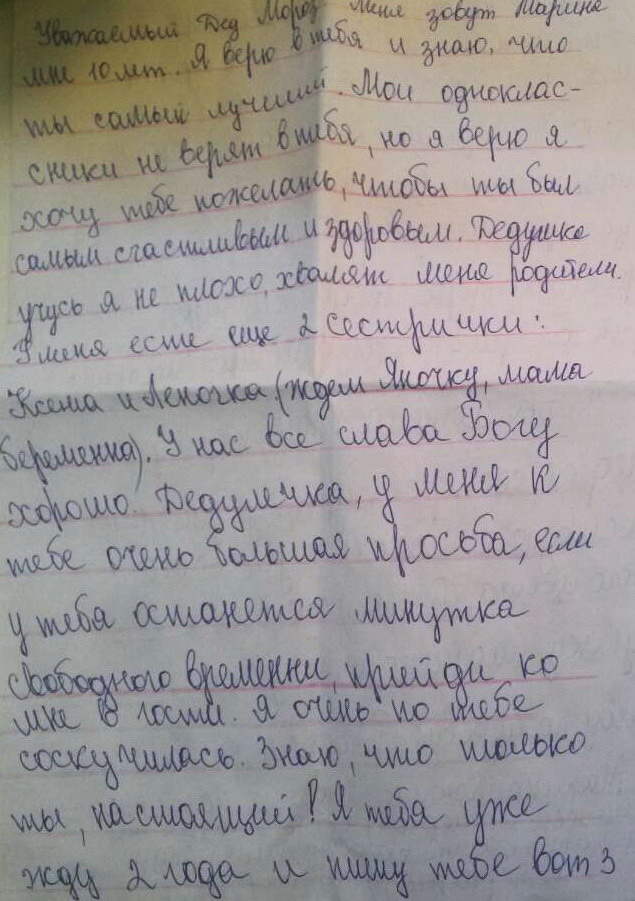 Уважаемый Дед Мороз меня зовут Марина
мне 10 лет. Я верю в тебя и знаю, что
ты самый лучший. Мои однаклас-
сники не верят в тибя, но я верю я
хочу тебе пожелать, чтобы ты был
самым счастливым и здоровым. Дедушка
учусь я не плохо, хвалят меня родители.
У меня есте еще 2 сестрички:
Ксюша и Леночка (ждем Яночку, мама
беременна). У нас все слава Богу
хорошо. Дедулечка, у меня к
тебе очень большая просьба, если
у тебя останется минутка
свободного временни, прийди ко
мне в гости. Я очень по тебе
соскучилась. Знаю, что только
ты, настоящий! Я тебя уже
жду 2 года и пишу тебе вот 3